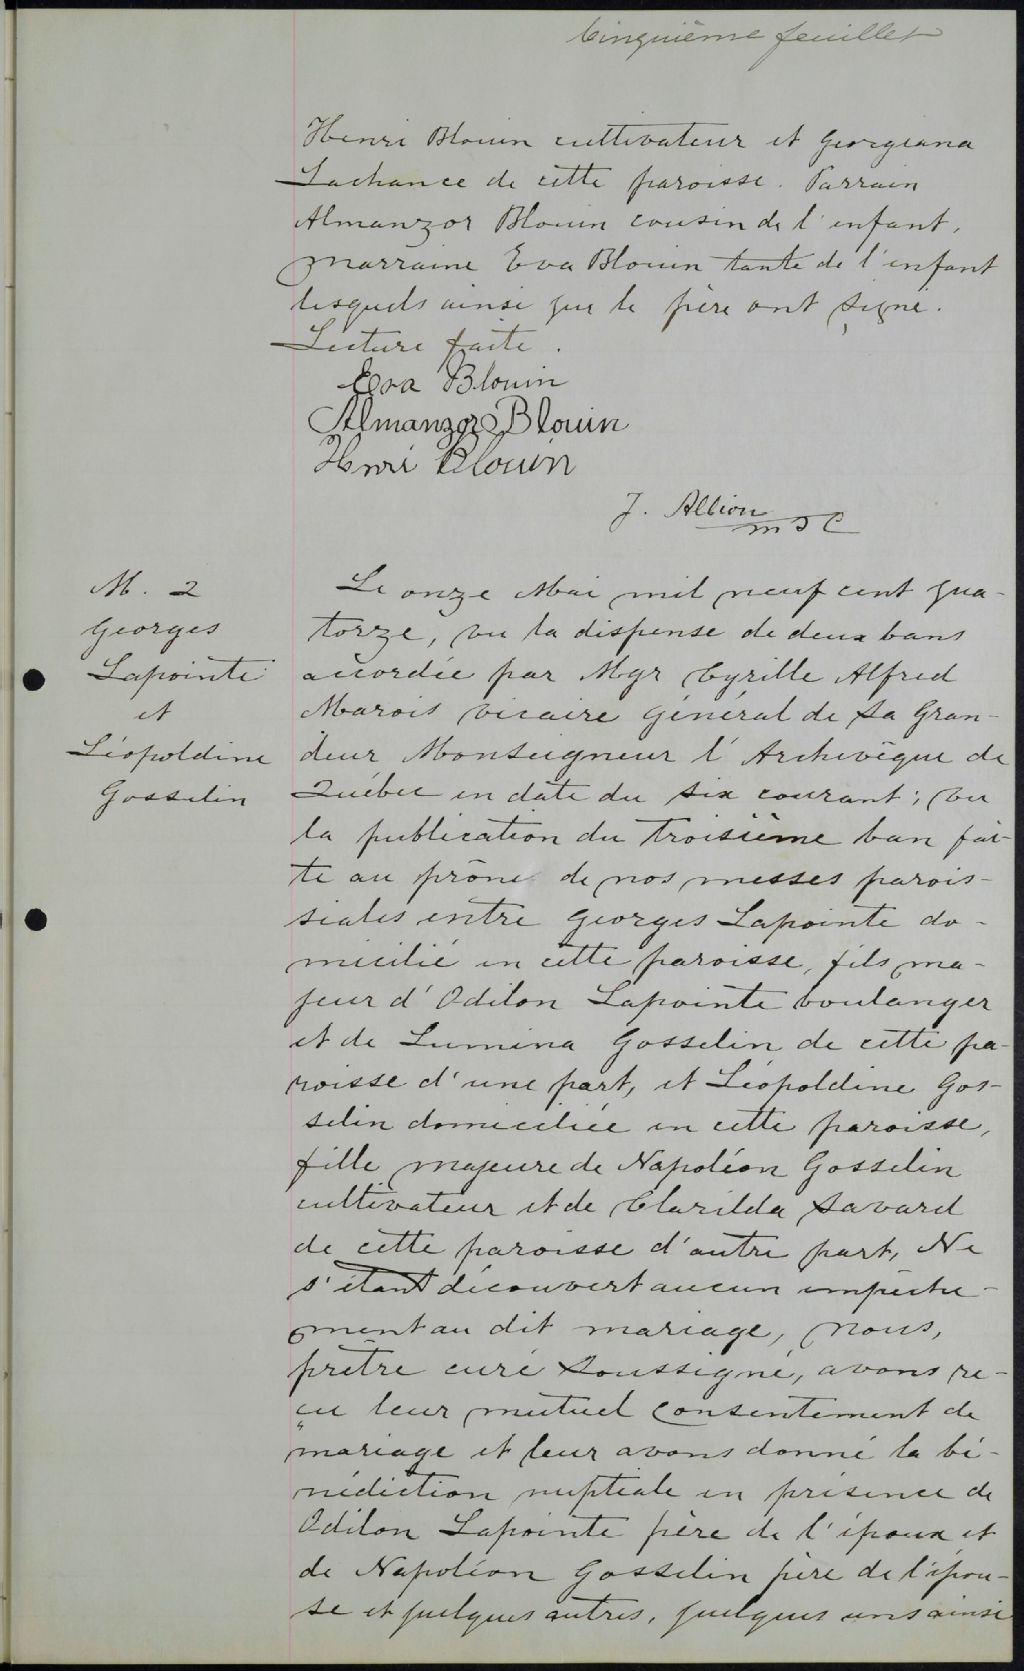 Cinquième feuillet
Henri Blouin cultivateur et Georgiana
Lachance de cette paroisse. Parrain
Almanzor Blouin cousin de l'enfant,
marraine Eva Blouin tante de l'enfant
lesquels ainsi que le père ont signé.
Lecture faite.
Eva Blouin
Almanzor Blouin
Henri Blouin
J. Allion
M. 2
Georges
Lapointe
et
Léopoldine
Gosselin
Le onze Mai mil neuf cent qua-
torze, vu la dispense de deux bans
accordée par Mgr Cyrille Alfred
Marois vicaire Général de Sa Gran-
deur Monseigneur l'Archevêque de
Québec en date du six courant; vu
la publication du troisième ban fai-
te au prône de nos messes parois-
siales entre Georges Lapointe do-
micilié en cette paroisse, fils ma-
jeur d'Odilon Lapointe boulanger
et de Lumina Gosselin de cette pa-
roisse d'une part, et Léopoldine Gos-
selin domiciliée en cette paroisse,
fille majeure de Napoléon Gosselin
cultivateur et de Clarilda Savard
de cette paroisse d'autre part, Ne
s'étant découvert aucun empêche-
ment au dit mariage, nous,
prêtre curé soussigné, avons re-
çu leur mutuel consentement de
mariage et leur avons donné la bé-
nédiction nuptiale en présence de
Odilon Lapointe père de l'époux et
de Napoléon Gosselin père de l'épou-
se et quelques autres, quelques uns ainsi